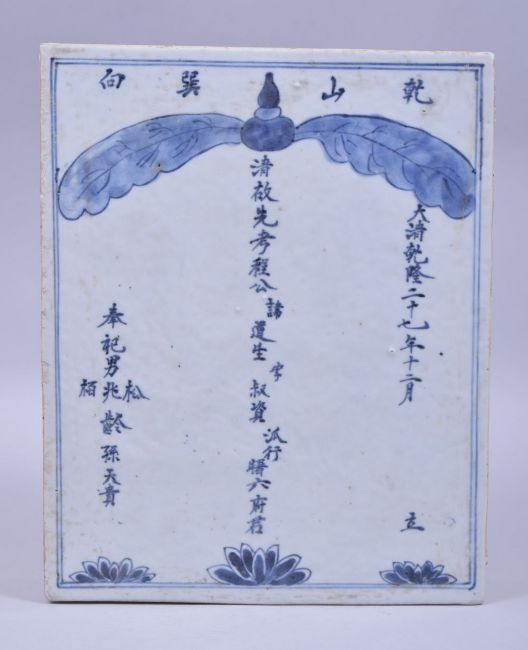 乾山巽向
大清乾隆二十七年十二月 立
清故先考程公諱道生字叔資派行臘六府君
奉祀男兆松柏齡孫天貴